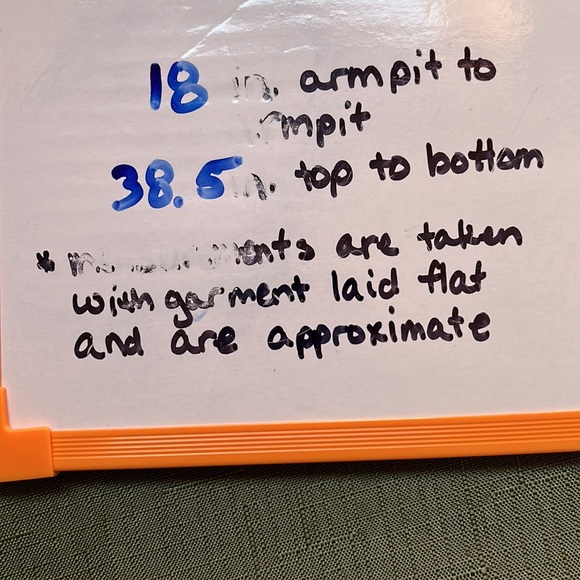 18 in. armpit to
armpit
38.5 in. top to bottom
* measurements are taken
with garment laid flat
and are approximate